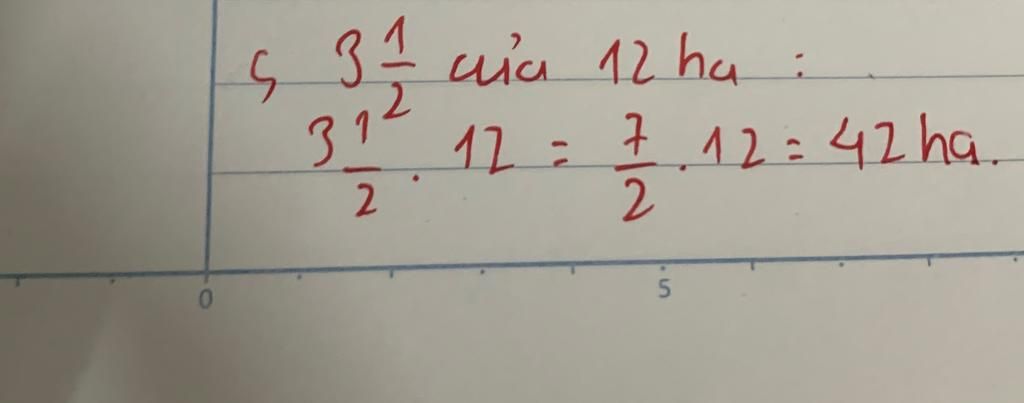 ς 3 1/2 của 12 ha :
3 1/2 . 12 = 7/2 . 12 = 42 ha.
0 5